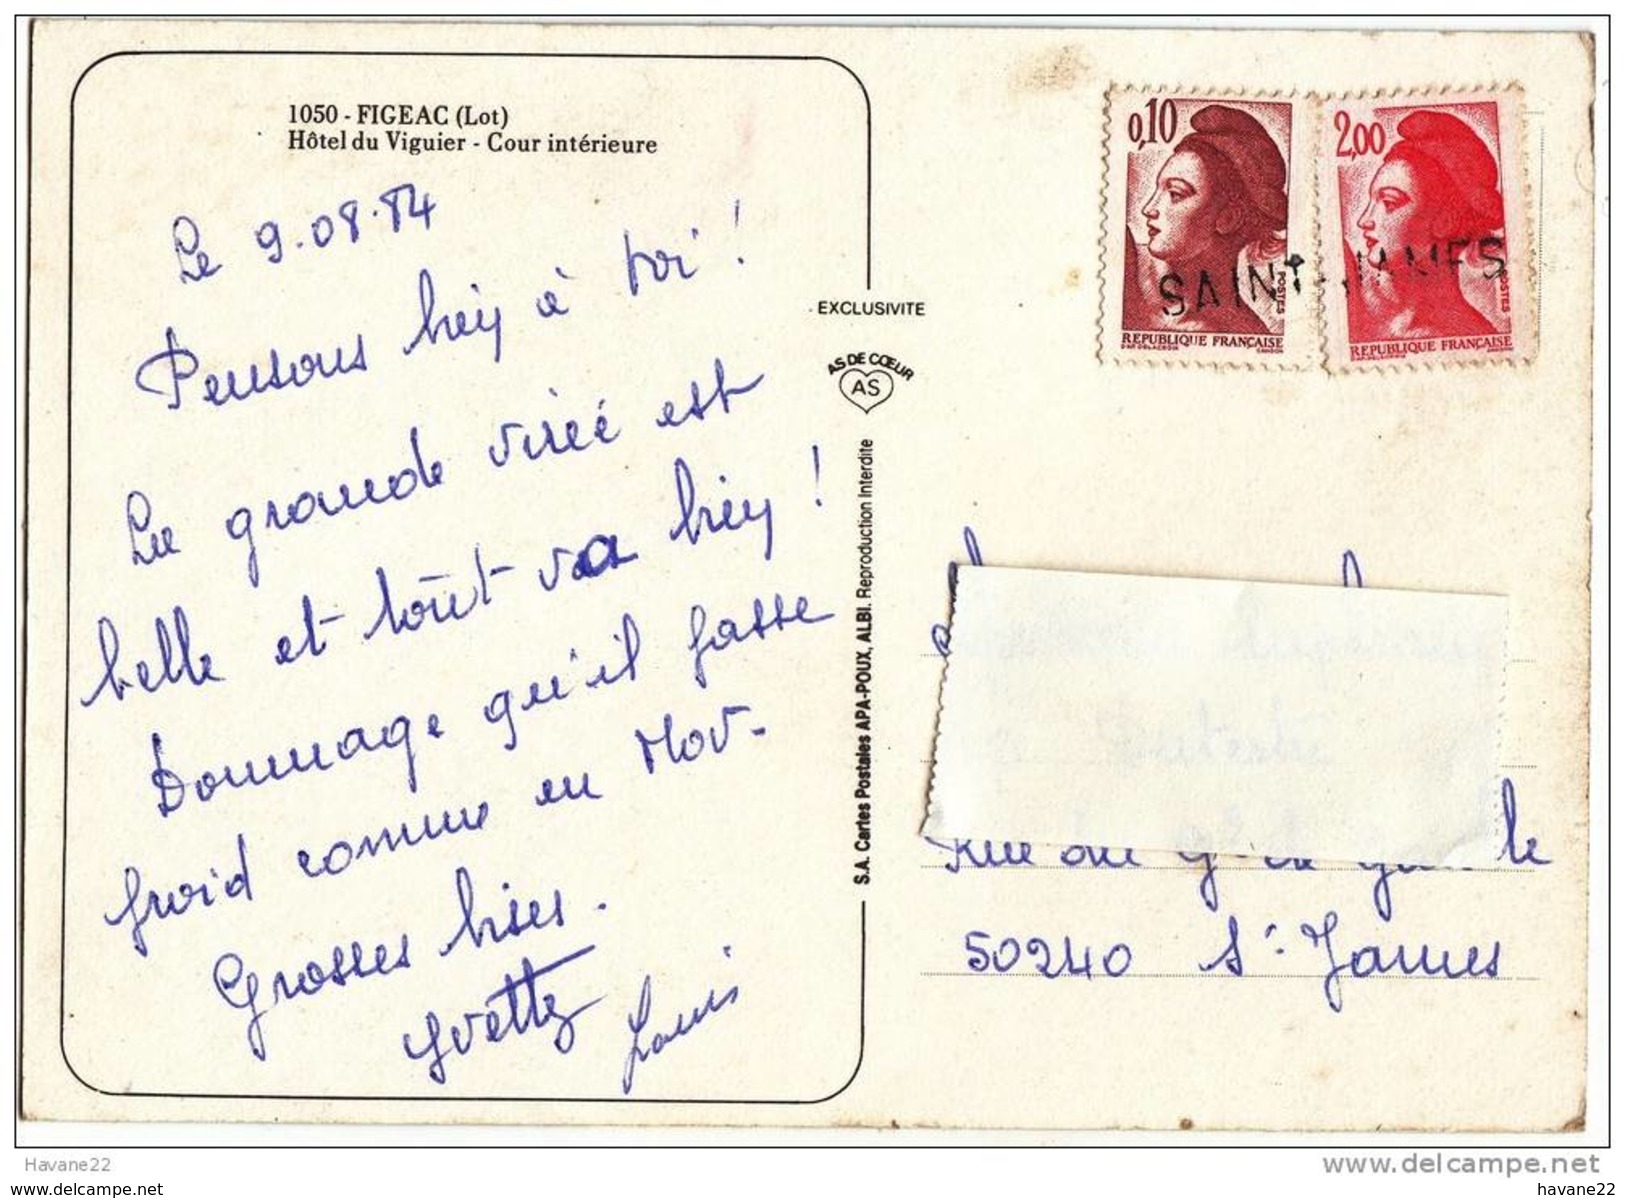 1050 - FIGEAC (Lot)
Hôtel du Viguier - Cour intérieure
Le 9.08.84
Pensons bien à toi !
La grande virée est
belle et tout va bien !
Dommage qu'il fasse
froid comme en Nov-
Grosses bises.
Yvette Louis
EXCLUSIVITE
AS DE CŒUR
AS
S.A. Cartes Postales APA-POUX, ALBI. Reproduction Interdite
0,10
POSTES
REPUBLIQUE FRANÇAISE
D'AP. DELACROIX GANDON
2,00
POSTES
REPUBLIQUE FRANÇAISE
D'AP. DELACROIX GANDON
SAINT-JAMES
Rue du
50240 St James
Havane22
www.delcampe.net
www.delcampe.net
havane22